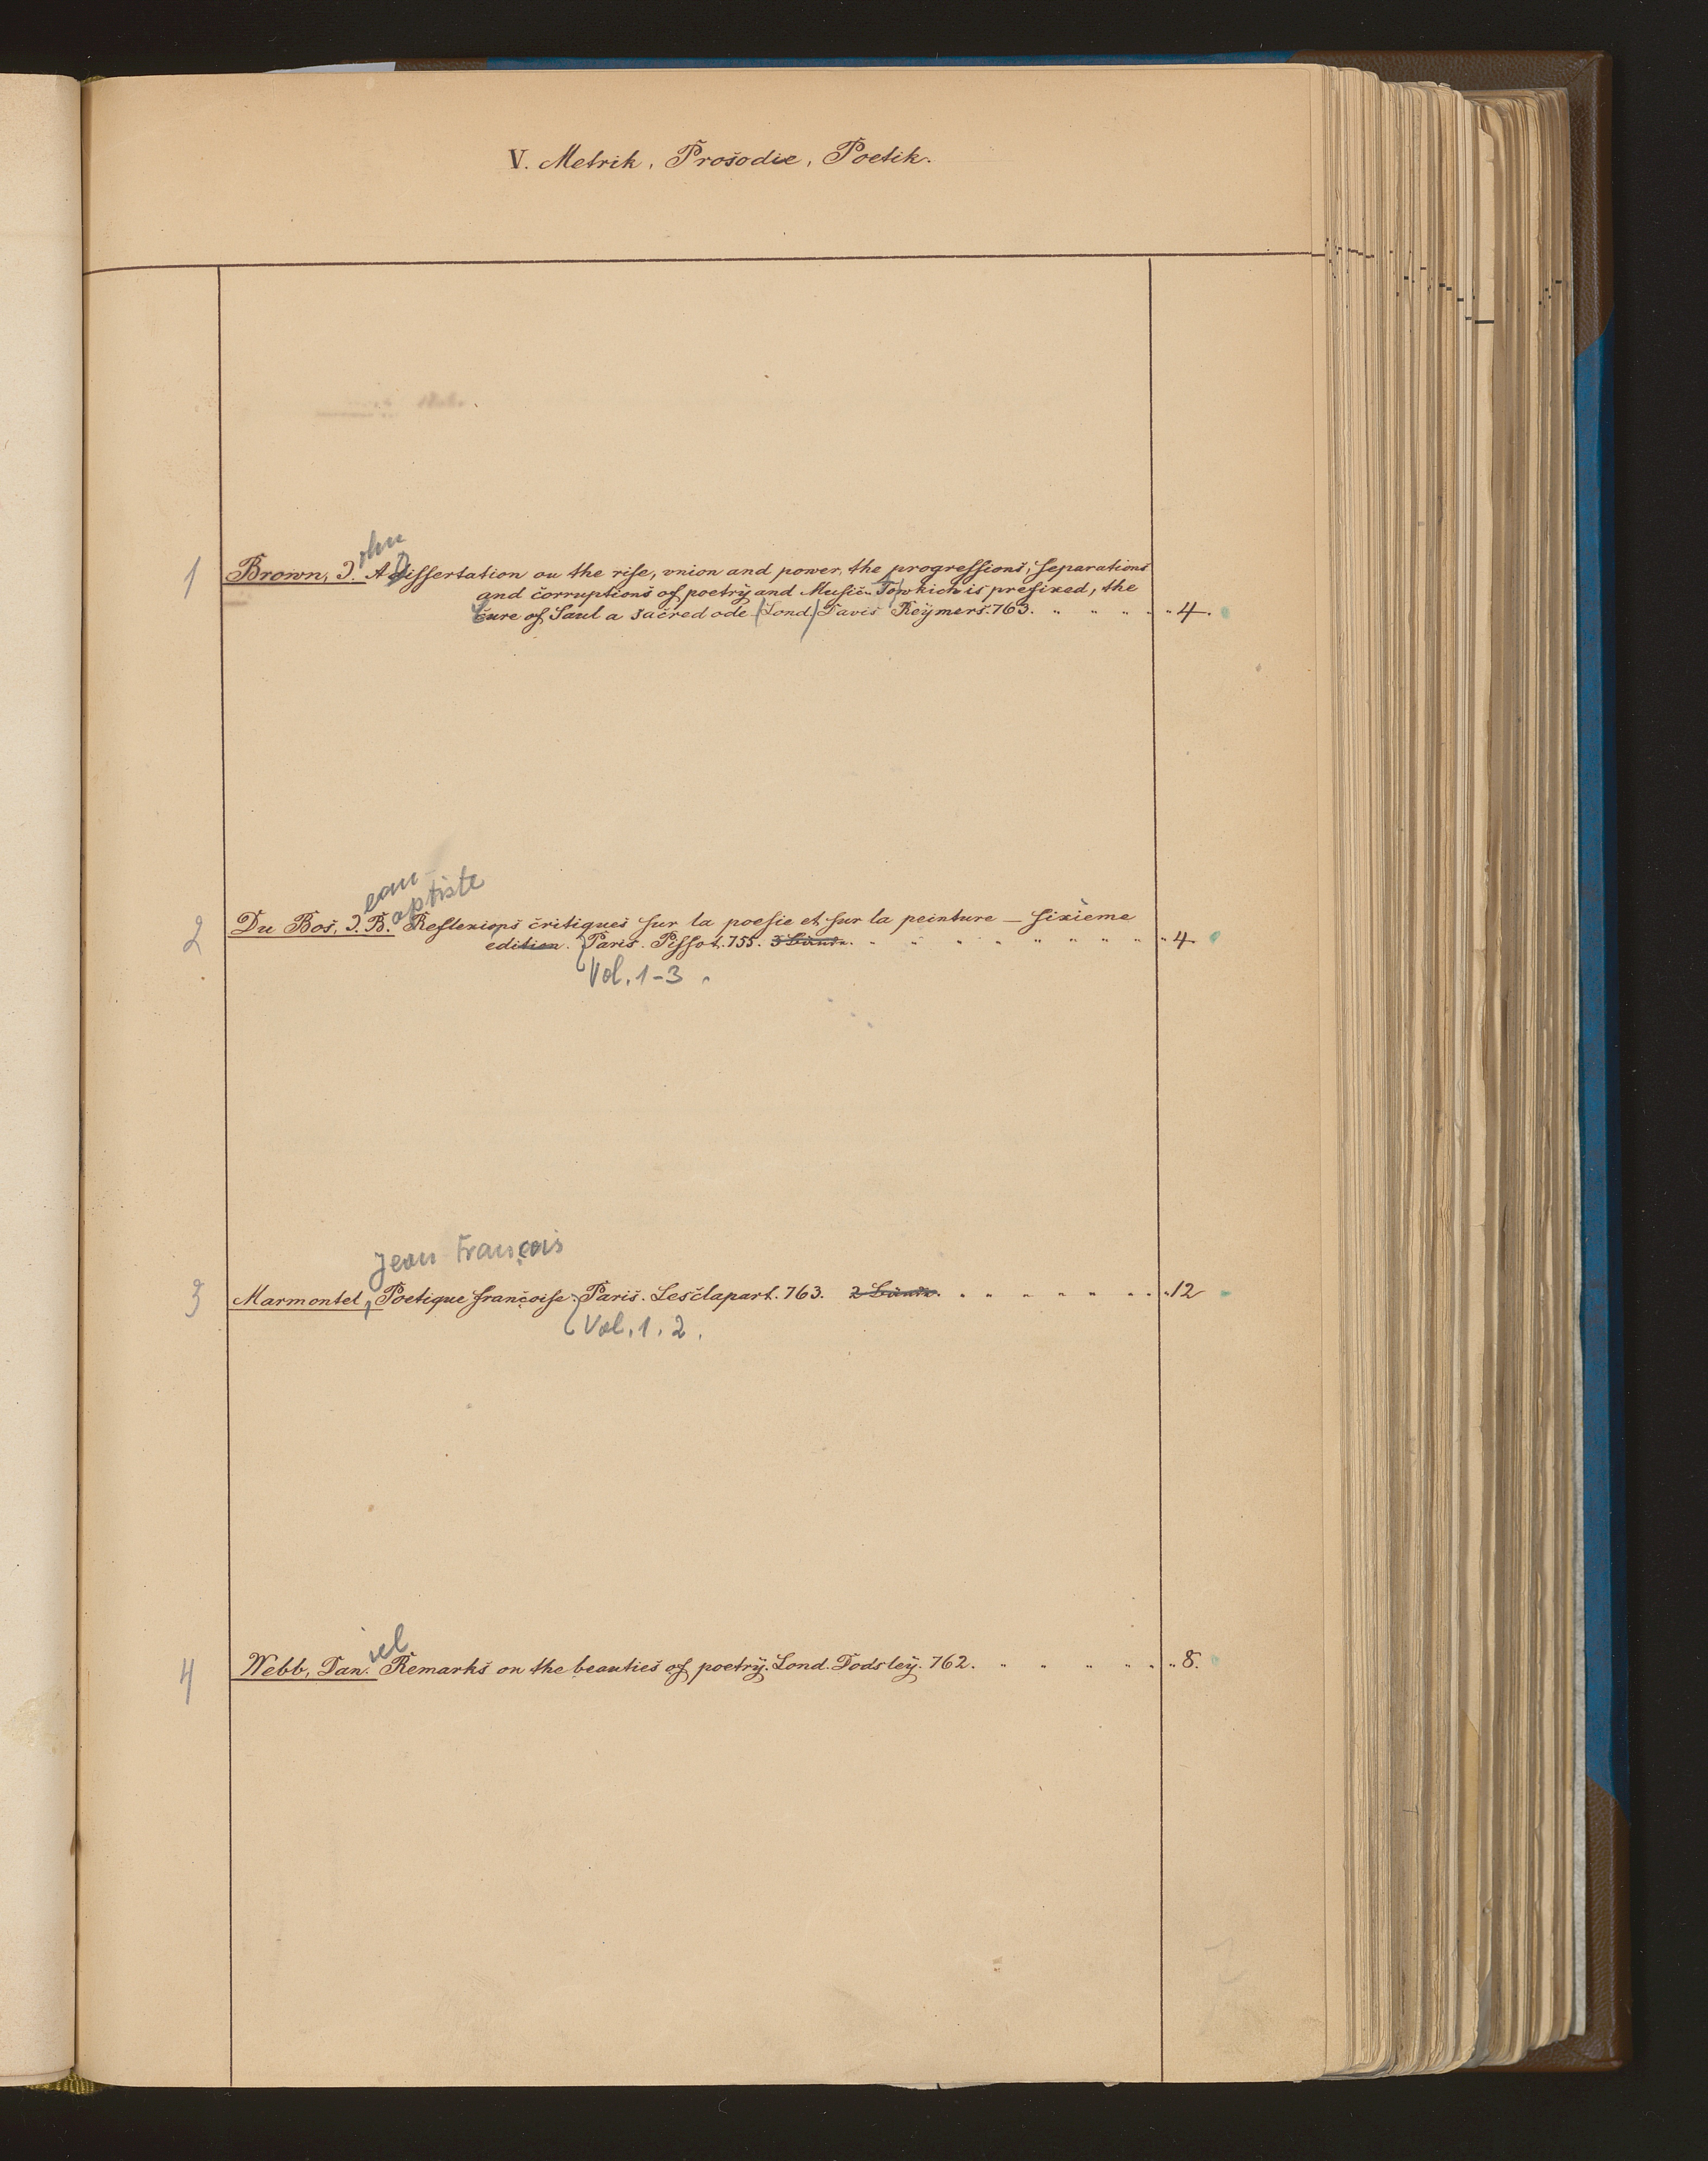 V. Metrik, Prosodie, Poetik.
ohn
1 Brown, J. A Dissertation on the rise, vnion and power, the progressions, separations
and corruptions of poetry and Music. To which is prefixed, the
Cure of Saul a sacred ode (Lond.) Davis Reymers. 763. " " " " " 4.
ean
aptiste
2 Du Bos, J. B. Reflexions critiques sur la poesie et sur la peinture — sixième
edition. Paris. Pissot. 755. 3 Bände. " " " " " " " " " 4.
Vol. 1-3.
Jean François
3 Marmontel, Poetique françoise. Paris. Lesclapart. 763. 2 Bände. " " " " " " " 12
Vol. 1. 2.
iel
4 Webb, Dan. Remarks on the beauties of poetry. Lond. Dodsley. 762. " " " " " " 8.